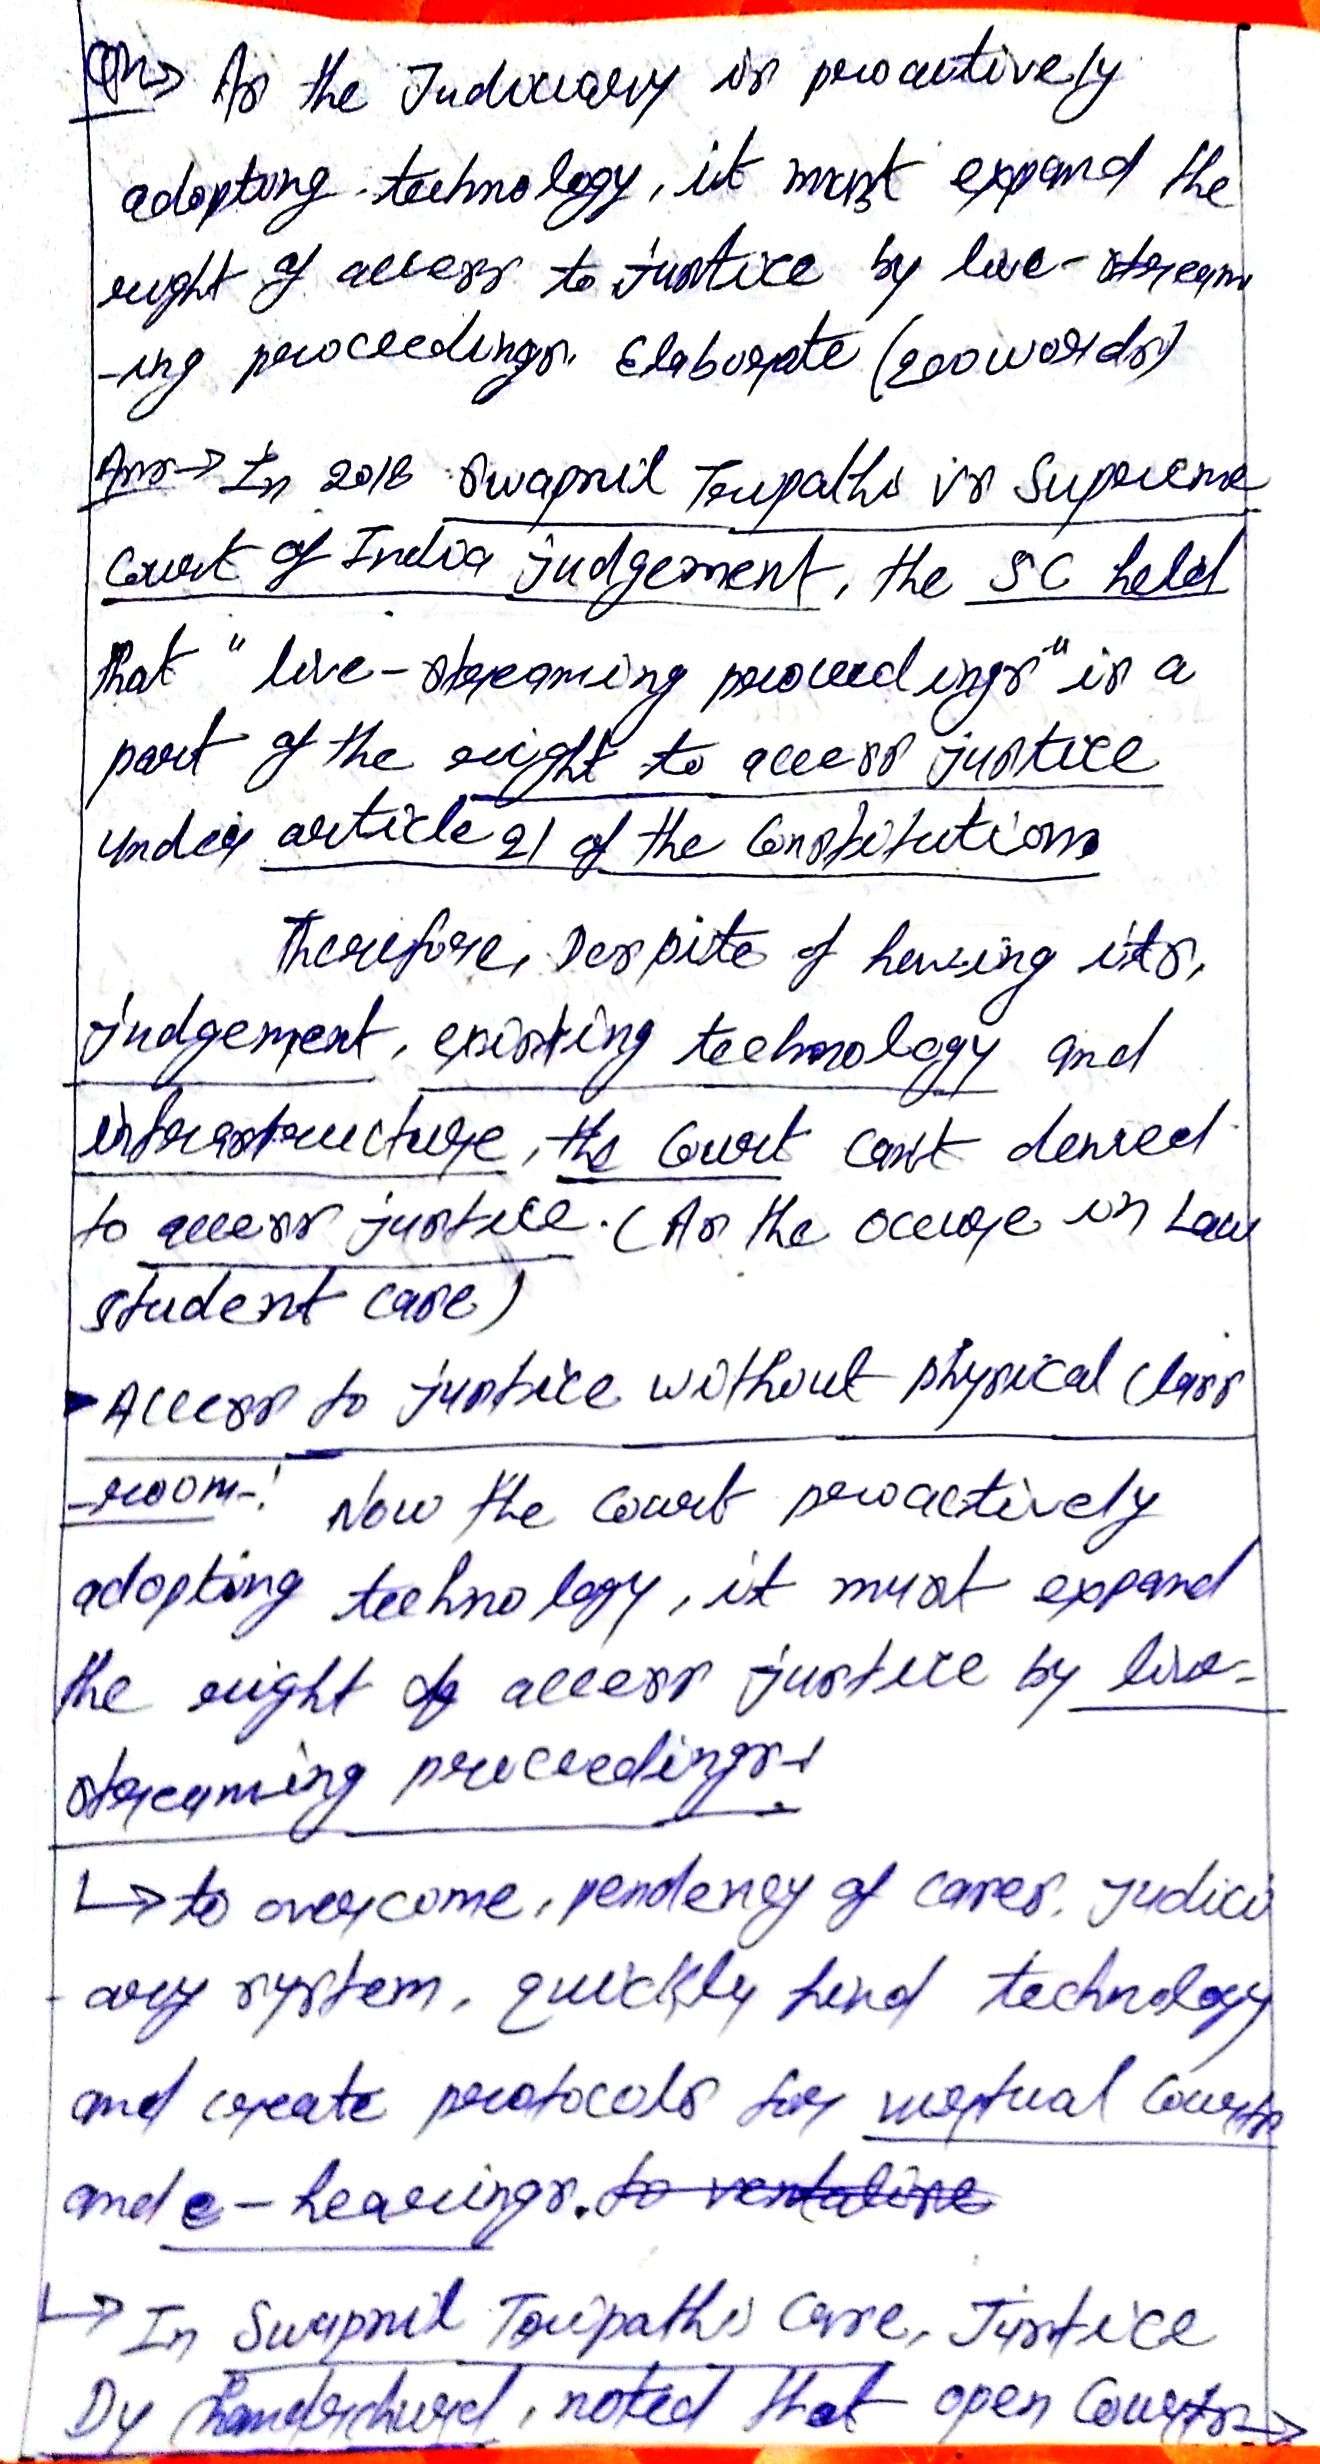 Qn→ As the Judiciary is proactively
adopting technology, it must expand the
right of access to justice by live-stream
-ing proceedings. Elaborate (200 words)
Ans→ In 2018 Swapnil Tripathi vs Supreme
Court of India judgement, the SC held
that "live-streaming proceedings" is a
part of the right to access justice
under article 21 of the Constitution.
Therefore, Despite of having its,
judgement, existing technology and
infrastructure, the Court can't denied
to access justice. (As the occure in Law
student case)
Access to justice without physical class
-room-: Now the court proactively
adopting technology, it must expand
the right of access justice by live-
streaming proceedings-:
↳ to overcome, pendency of cases, judici
-ary system, quickly find technology
and create protocols for virtual Courts
and e-hearings. to
↳ In Swapnil Tripathi Case, Justice
Dy Chandrchurd, noted that open Courts→